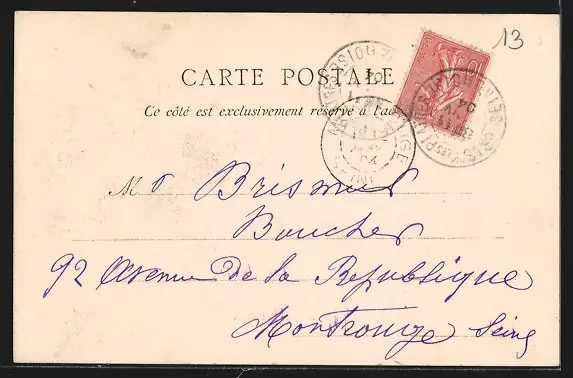 13
CARTE POSTALE
Ce côté est exclusivement réservé à l'ad
M r Brismur
Boucher
92 Avenue De la Republique
Montrouge Seine